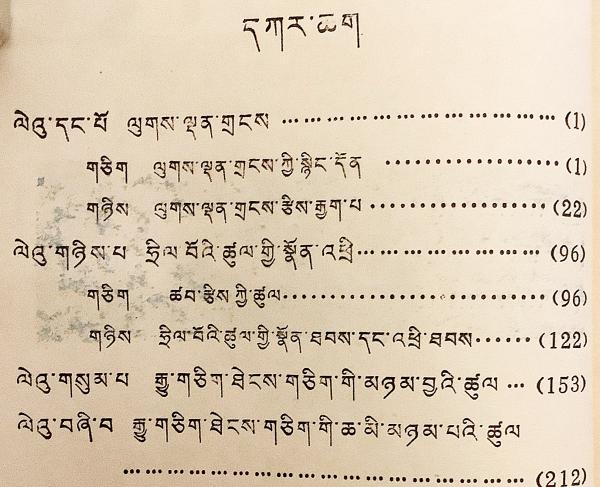 དཀར་ཆག
ལེའུ་དང་པོ ལུགས་ལྡན་གྲངས ……………………… (1)
གཅིག ལུགས་ལྡན་གྲངས་ཀྱི་སྙིང་དོན ……………… (1)
གཉིས ལུགས་ལྡན་གྲངས་རྩིས་རྒྱག་པ ……………… (22)
ལེའུ་གཉིས་པ ཧྲིལ་པོའི་ཚུལ་གྱི་སྣོན་འཕྲི ……………… (96)
གཅིག ཚབ་རྩིས་ཀྱི་ཚུལ ……………………… (96)
གཉིས ཧྲིལ་པོའི་ཚུལ་གྱི་སྣོན་ཐབས་དང་འཕྲི་ཐབས …… (122)
ལེའུ་གསུམ་པ རྒྱུ་གཅིག་ཐེངས་གཅིག་གི་མཉམ་བྱའི་ཚུལ … (153)
ལེའུ་བཞི་བ རྒྱུ་གཅིག་ཐེངས་གཅིག་གི་ཆ་མི་མཉམ་པའི་ཚུལ
……………………………………… (212)